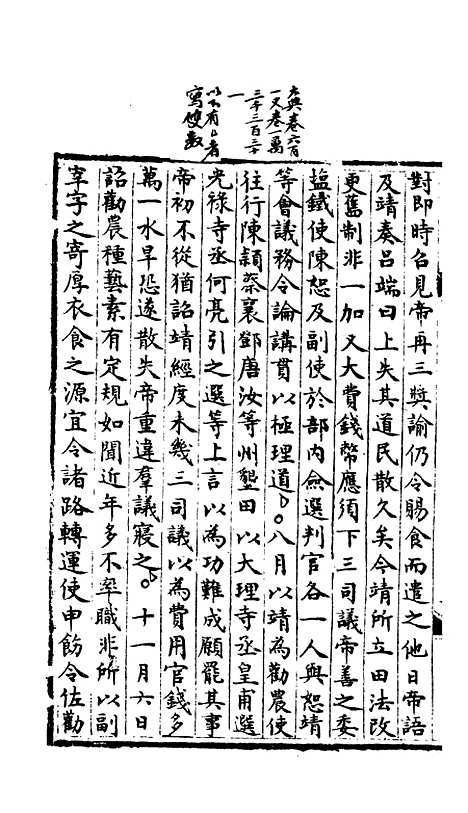 大典卷六百
一又卷一萬
三千三百三十
一
以下有△者
寫雙數
對即時召見帝再三獎諭仍令賜食而遣之他日帝語
及靖奏呂端曰上失其道民散久矣今靖所立田法改
更舊制非一加又大費錢幣應須下三司議帝善之委
塩鐵使陳恕及副使於部內僉選判官各一人與恕靖
等會議務令論講貫以極理道。八月以靖為勸農使
往行陳潁蔡襄鄧唐汝等州墾田以大理寺丞皇甫選
光祿寺丞何亮引之選等上言以為功難成願罷其事
帝初不從猶詔靖經度未幾三司議以為費用官錢多
萬一水旱恐遂散失帝重違羣議寢之。十一月六日
詔勸農種藝素有定規如聞近年多不率職非所以副
宰字之寄厚衣食之源宜令諸路轉運使申飭令佐勸